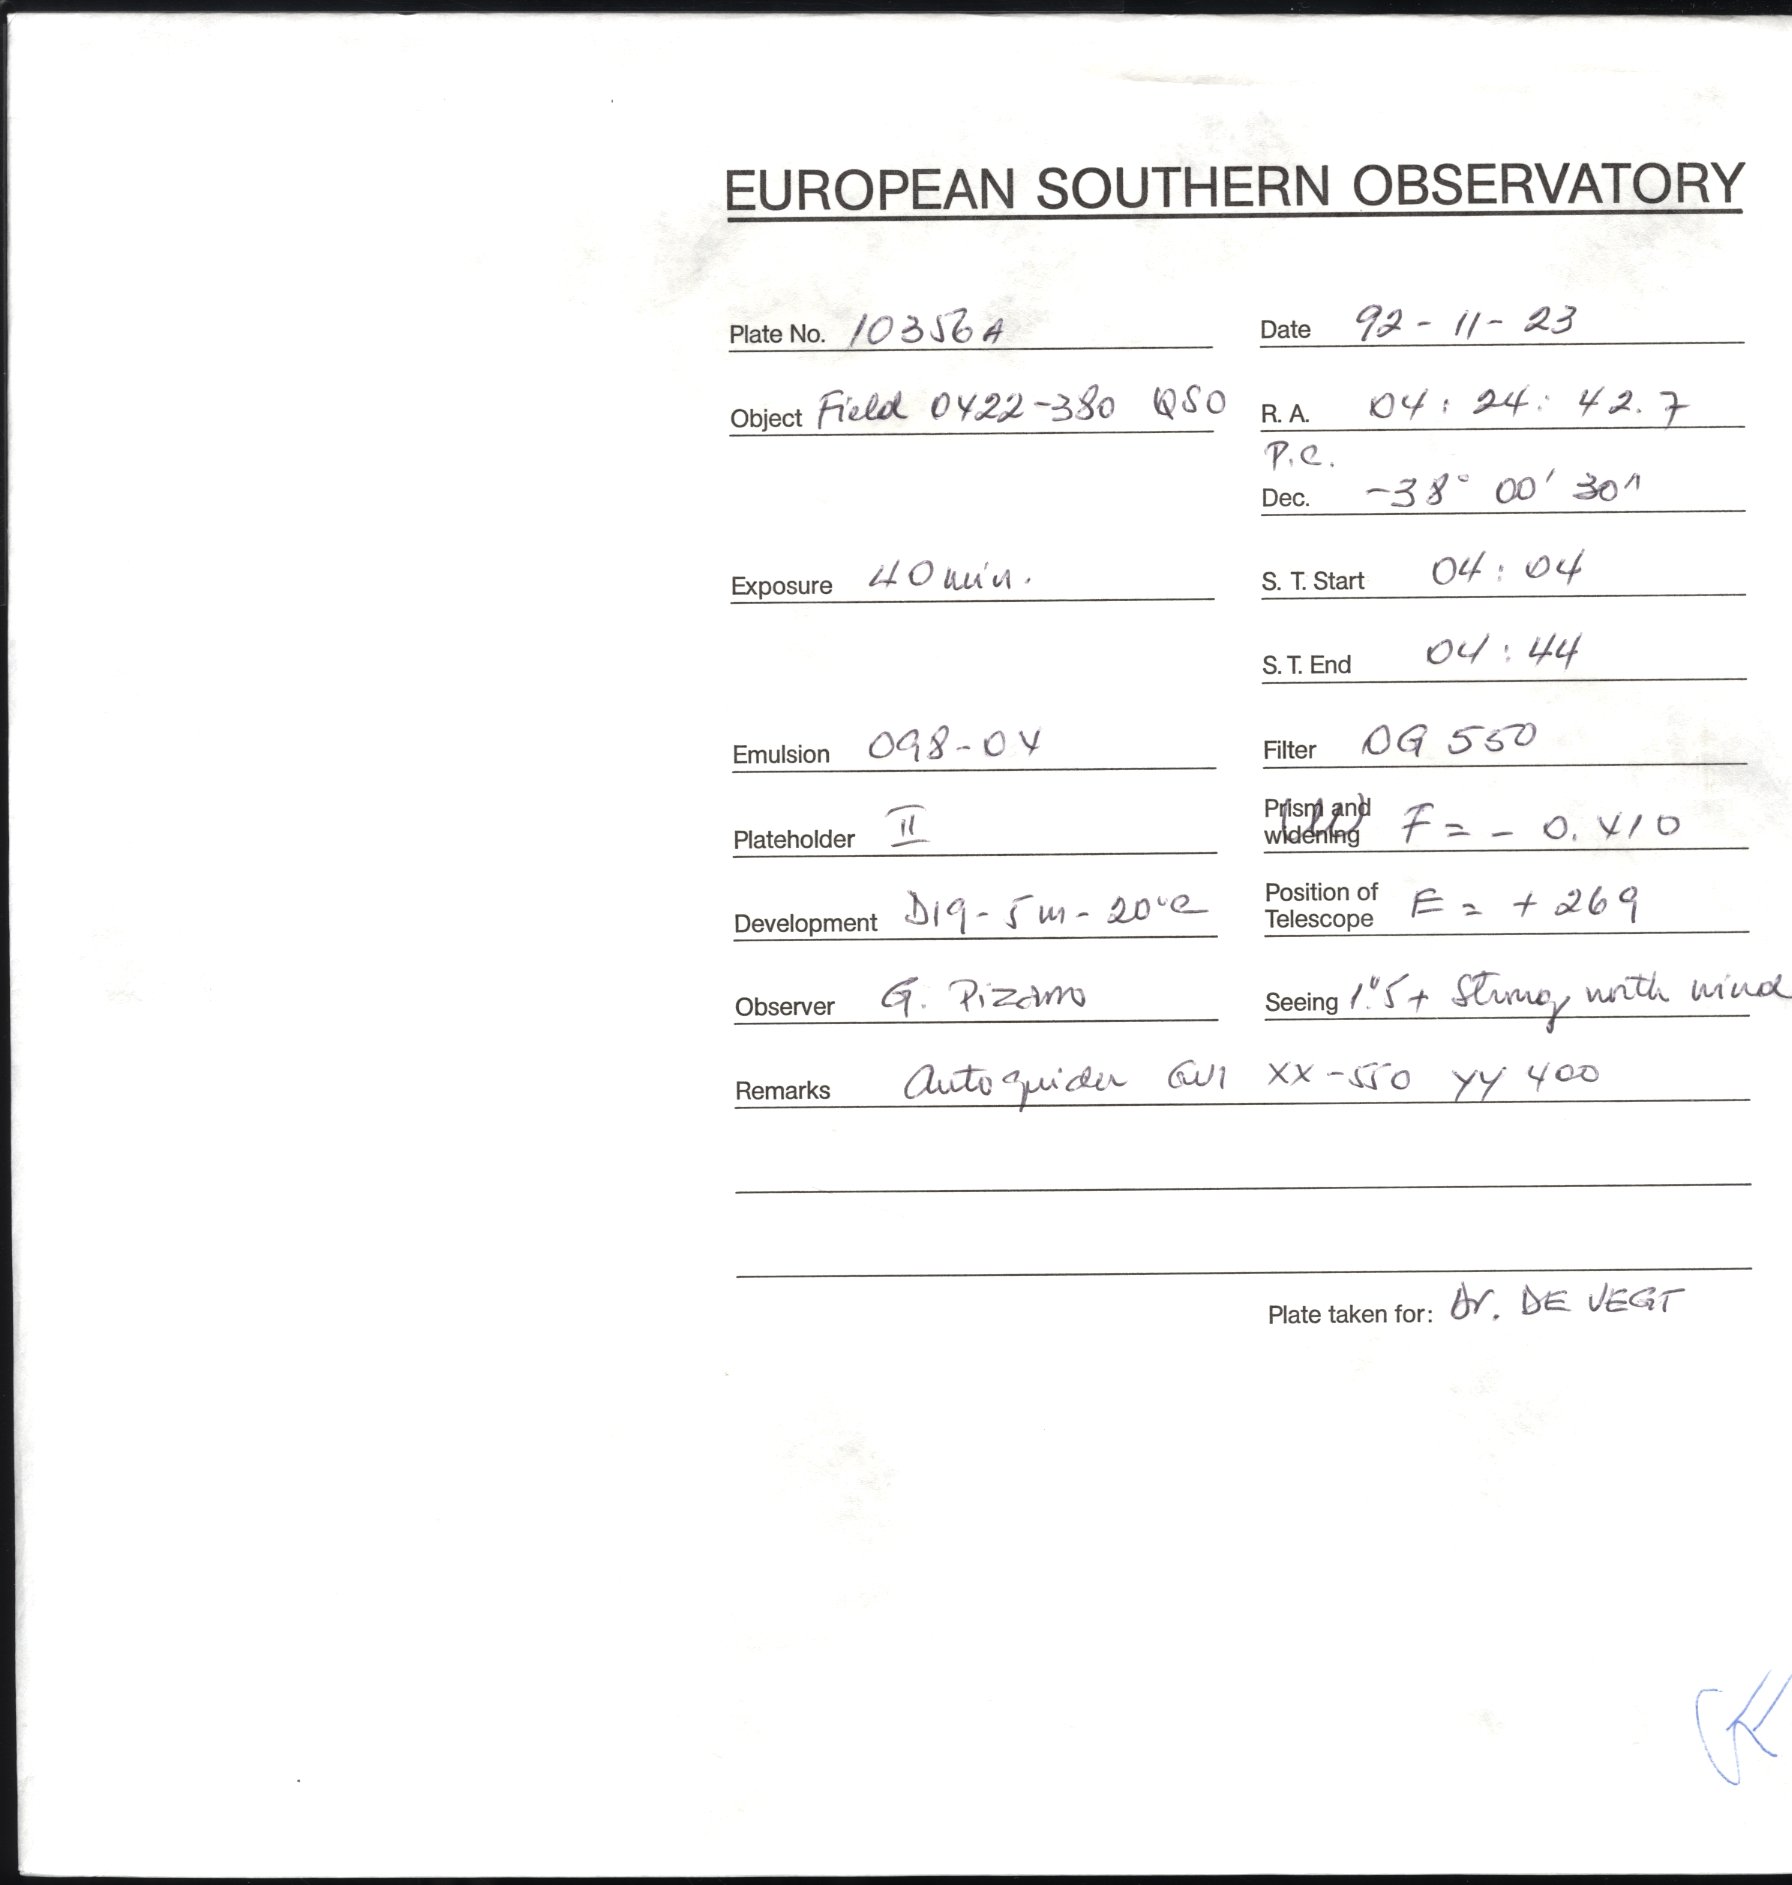 EUROPEAN SOUTHERN OBSERVATORY
Plate No. 10356A Date 92-11-23
Object Field 0422-380 QSO R. A. 04: 24: 42.7
P.C.
Dec. -38° 00' 30"
Exposure 40 min. S. T. Start 04:04
S. T. End 04:44
Emulsion 098-04 Filter OG 550
Plateholder II Prism and widening F = - 0.410
Development D19-5m-20°C Position of Telescope E = + 269
Observer G. Pizarro Seeing 1."5+ Strong north wind
Remarks Autoguider XX-550 YY 400
Plate taken for: Dr. DE VEGT